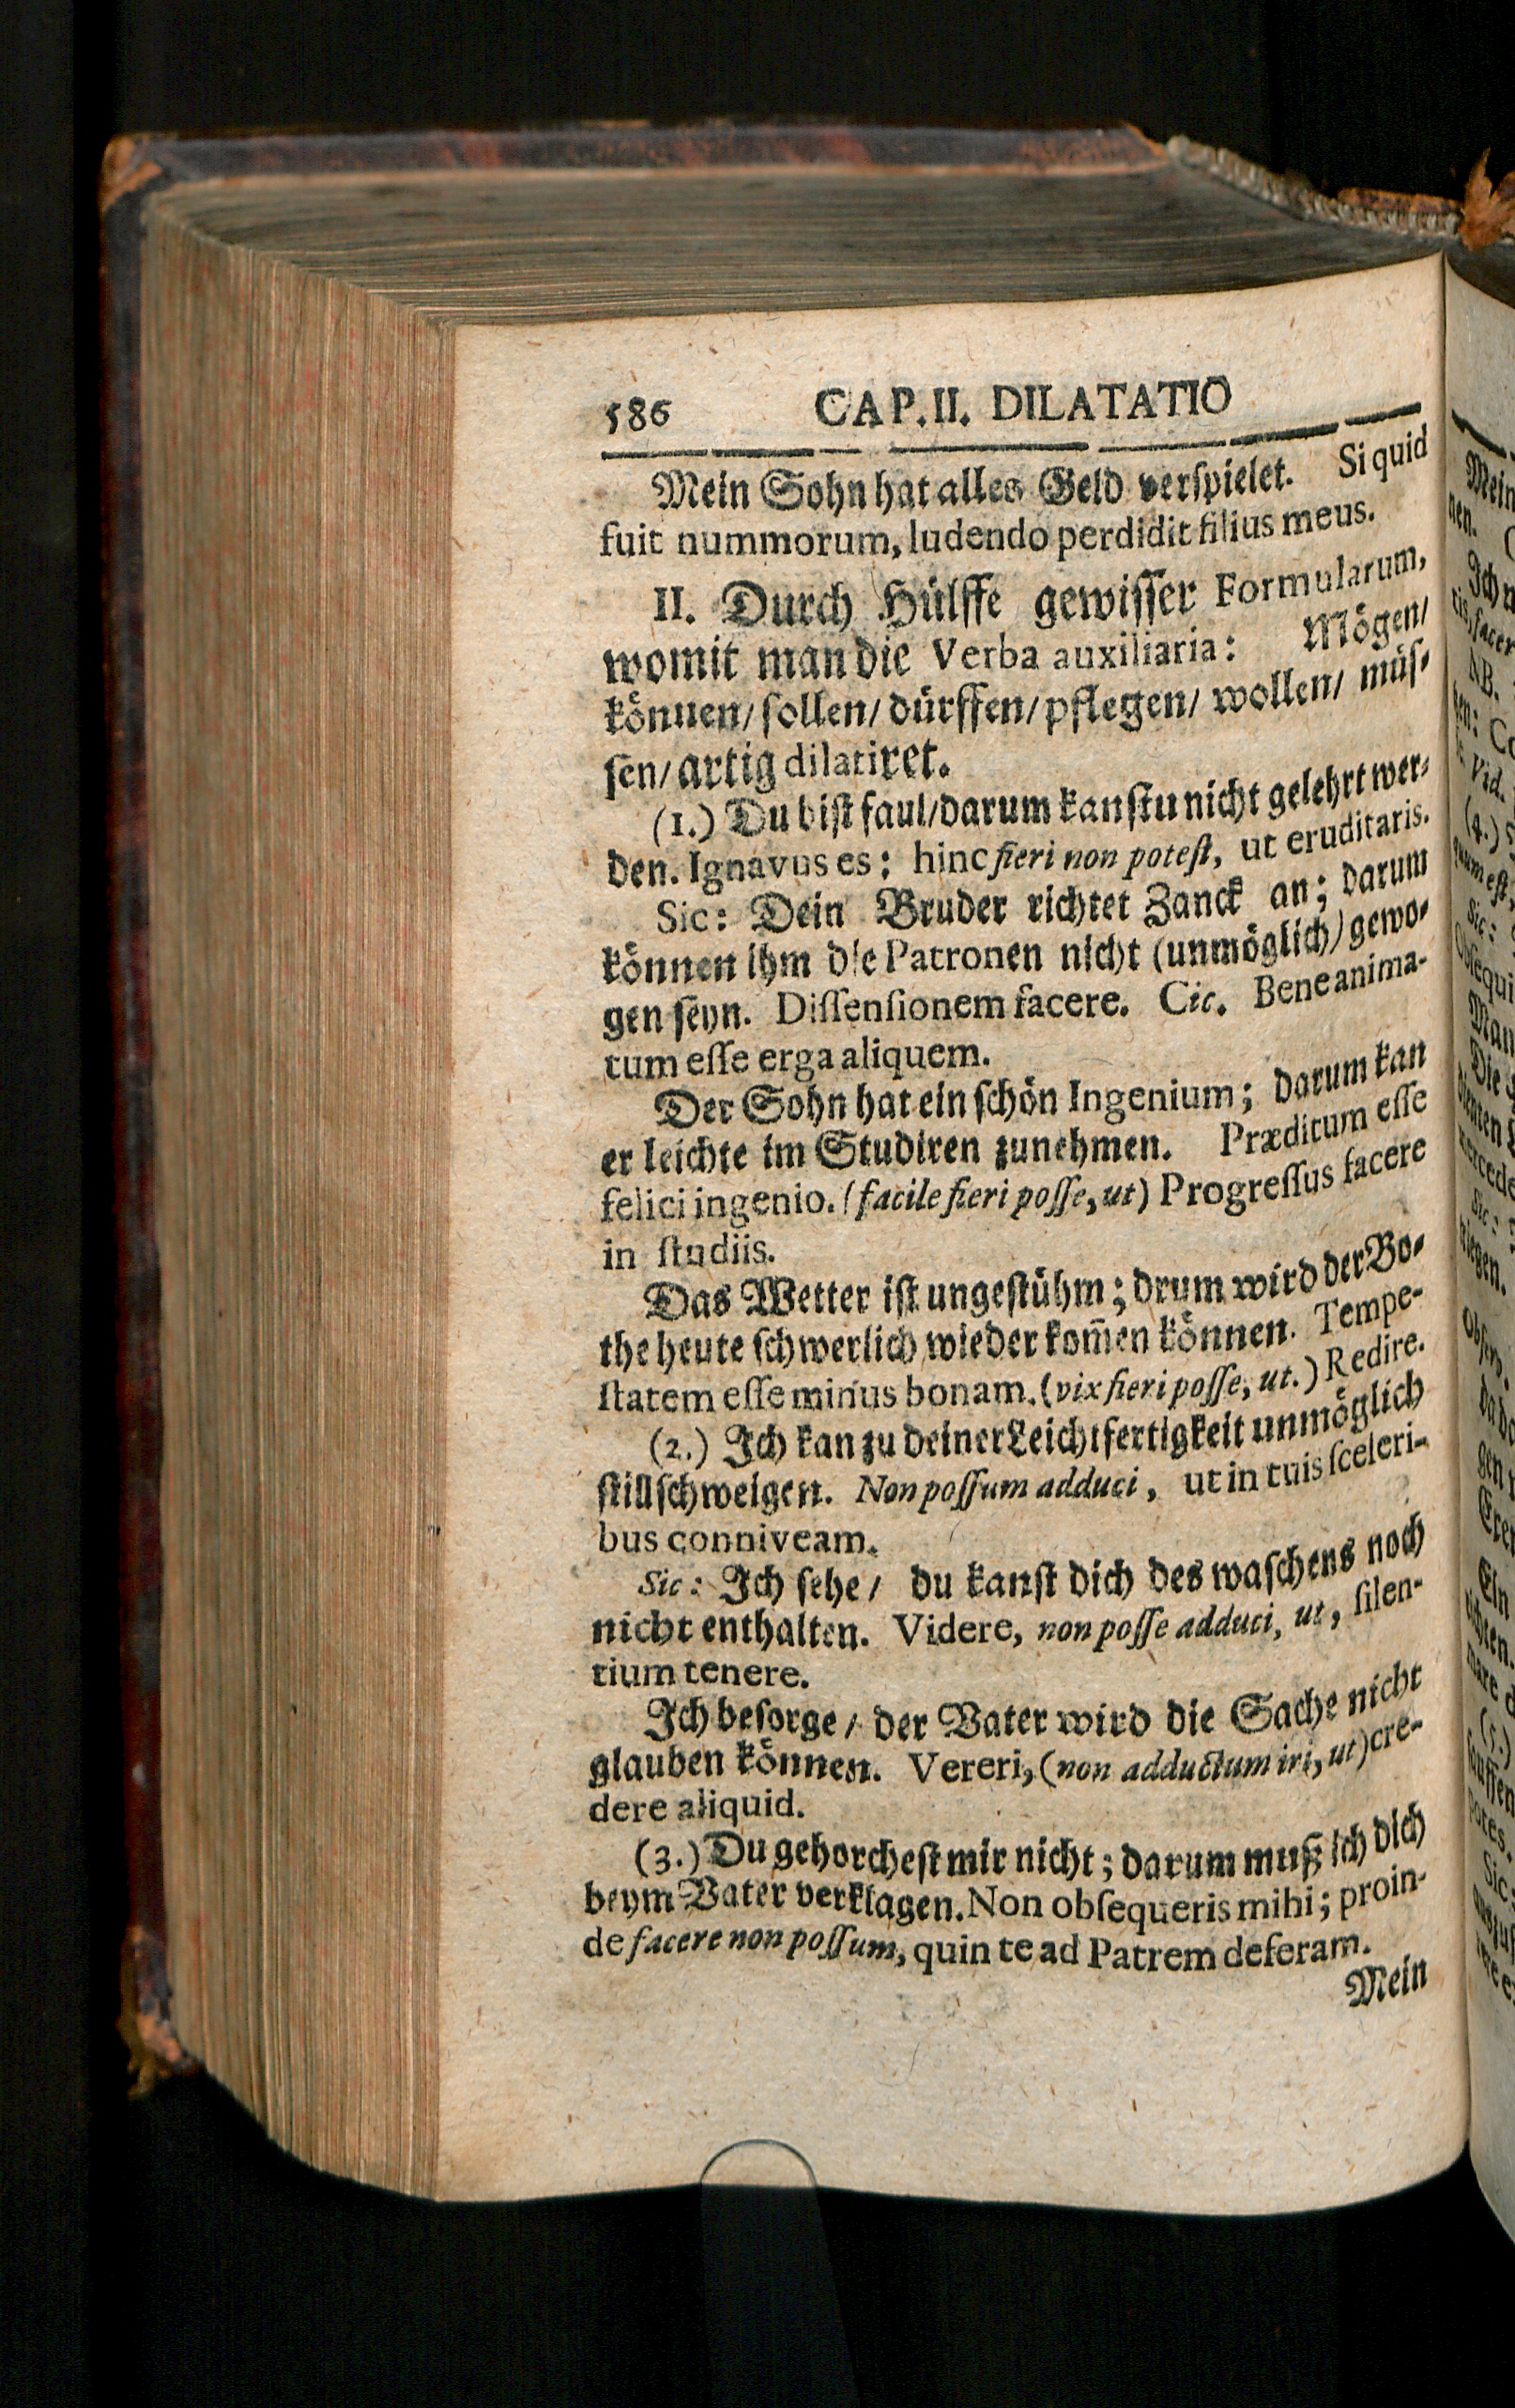 586 CAP.II. DILATATIO
Mein Sohn hat alles Geld verſpielet. Si quid
fuit nummorum, ludendo perdidit filius meus.
II. Durch Hülffe gewiſſer Formularum,
womit man die Verba auxiliaria: Mögen/
könuen/ ſollen/ dürffen/ pflegen/ wollen/ müſ-
ſen/ artig dilatiret.
(1.) Du biſt faul/ darum kanſtu nicht gelehrt wer-
den. Ignavus es; hinc fieri non poteſt, ut eruditaris.
Sic: Dein Bruder richtet Zanck an; darum
können ihm die Patronen nicht (unmöglich) gewo-
gen ſeyn. Diſſenſionem facere. Cic. Bene anima-
tum eſſe erga aliquem.
Der Sohn hat ein ſchön Ingenium; darum kan
er leichte im Studiren zunehmen. Præditum eſſe
felici ingenio. (facile fieri poſſe, ut) Progreſſus facere
in ſtudiis.
Das Wetter iſt ungeſtühm; drum wird der Bo-
the heute ſchwerlich wieder kom̃en können. Tempe-
ſtatem eſſe minus bonam. (vix fieri poſſe, ut.) Redire.
(2.) Ich kan zu deiner Leichtfertigkeit unmöglich
ſtillſchweigen. Non poſſum adduci, ut in tuis ſceleri-
bus conniveam.
Sic: Ich ſehe/ du kanſt dich des waſchens noch
nicht enthalten. Videre, non poſſe adduci, ut, ſilen-
tium tenere.
Ich beſorge/ der Vater wird die Sache nicht
glauben können. Vereri, (non adductum iri, ut) cre-
dere aliquid.
(3.) Du gehorcheſt mir nicht; darum muß ich dich
beym Vater verklagen. Non obſequeris mihi; proin-
de facere non poſſum, quin te ad Patrem deferam.
Mein